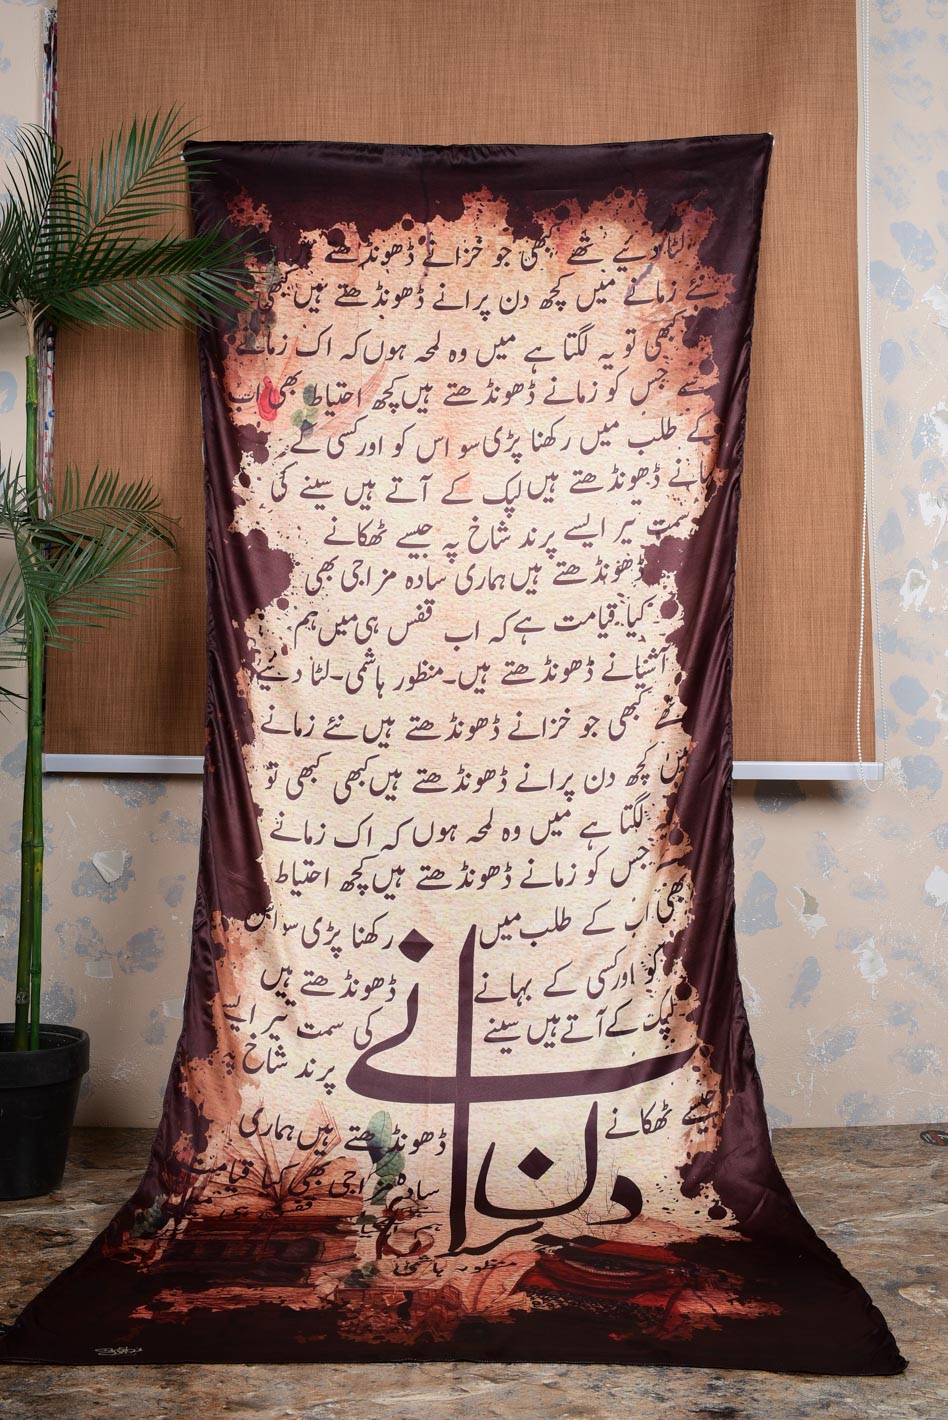 لٹا دیئے تھے کبھی جو خزانے ڈھونڈھتے ہیں
نئے زمانے میں کچھ دن پرانے ڈھونڈھتے ہیں کبھی
کبھی تو یہ لگتا ہے میں وہ لمحہ ہوں کہ اک زمانے
سے جس کو زمانے ڈھونڈھتے ہیں کچھ احتیاط بھی اب
کے طلب میں رکھنا پڑی سو اس کو اور کسی کے
بہانے ڈھونڈھتے ہیں لپک کے آتے ہیں سینے کی
سمت تیر ایسے پرند شاخ پہ جیسے ٹھکانے
ڈھونڈھتے ہیں ہماری سادہ مزاجی بھی
کیا قیامت ہے کہ اب قفس ہی میں ہم
آشیانے ڈھونڈھتے ہیں۔منظور ہاشمی۔لٹا دیئے
تھے کبھی جو خزانے ڈھونڈھتے ہیں نئے زمانے
میں کچھ دن پرانے ڈھونڈھتے ہیں کبھی کبھی تو
یہ لگتا ہے میں وہ لمحہ ہوں کہ اک زمانے
سے جس کو زمانے ڈھونڈھتے ہیں کچھ احتیاط
بھی اب کے طلب میں رکھنا پڑی سو اس
کو اور کسی کے بہانے ڈھونڈھتے ہیں
لپک کے آتے ہیں سینے کی سمت تیر ایسے
پرند شاخ پہ
جیسے ٹھکانے ڈھونڈھتے ہیں ہماری
سادہ مزاجی بھی کیا قیامت
قفس ہی
دن پرانے
منظور ہاشمی